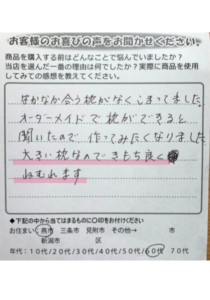 お客様のお喜びの声をお聞かせください。
商品を購入する前はどんなことで悩んでいましたか?
当店を選んだ一番の理由は何でしたか?実際に商品を使用
してみての感想を教えてください。
なかなか合う枕がなくこまってました。
オーダーメイドで枕ができると
聞いたので作ってみたくなりました
大きい枕なのできもち良く
ねむれます
◆下記の中から当てはまるものに〇印をお付けください
お住まい 燕市 三条市 見附市 その他→ 市
新潟市 区
年代:10代/20代/30代/40代/50代/60代 70代